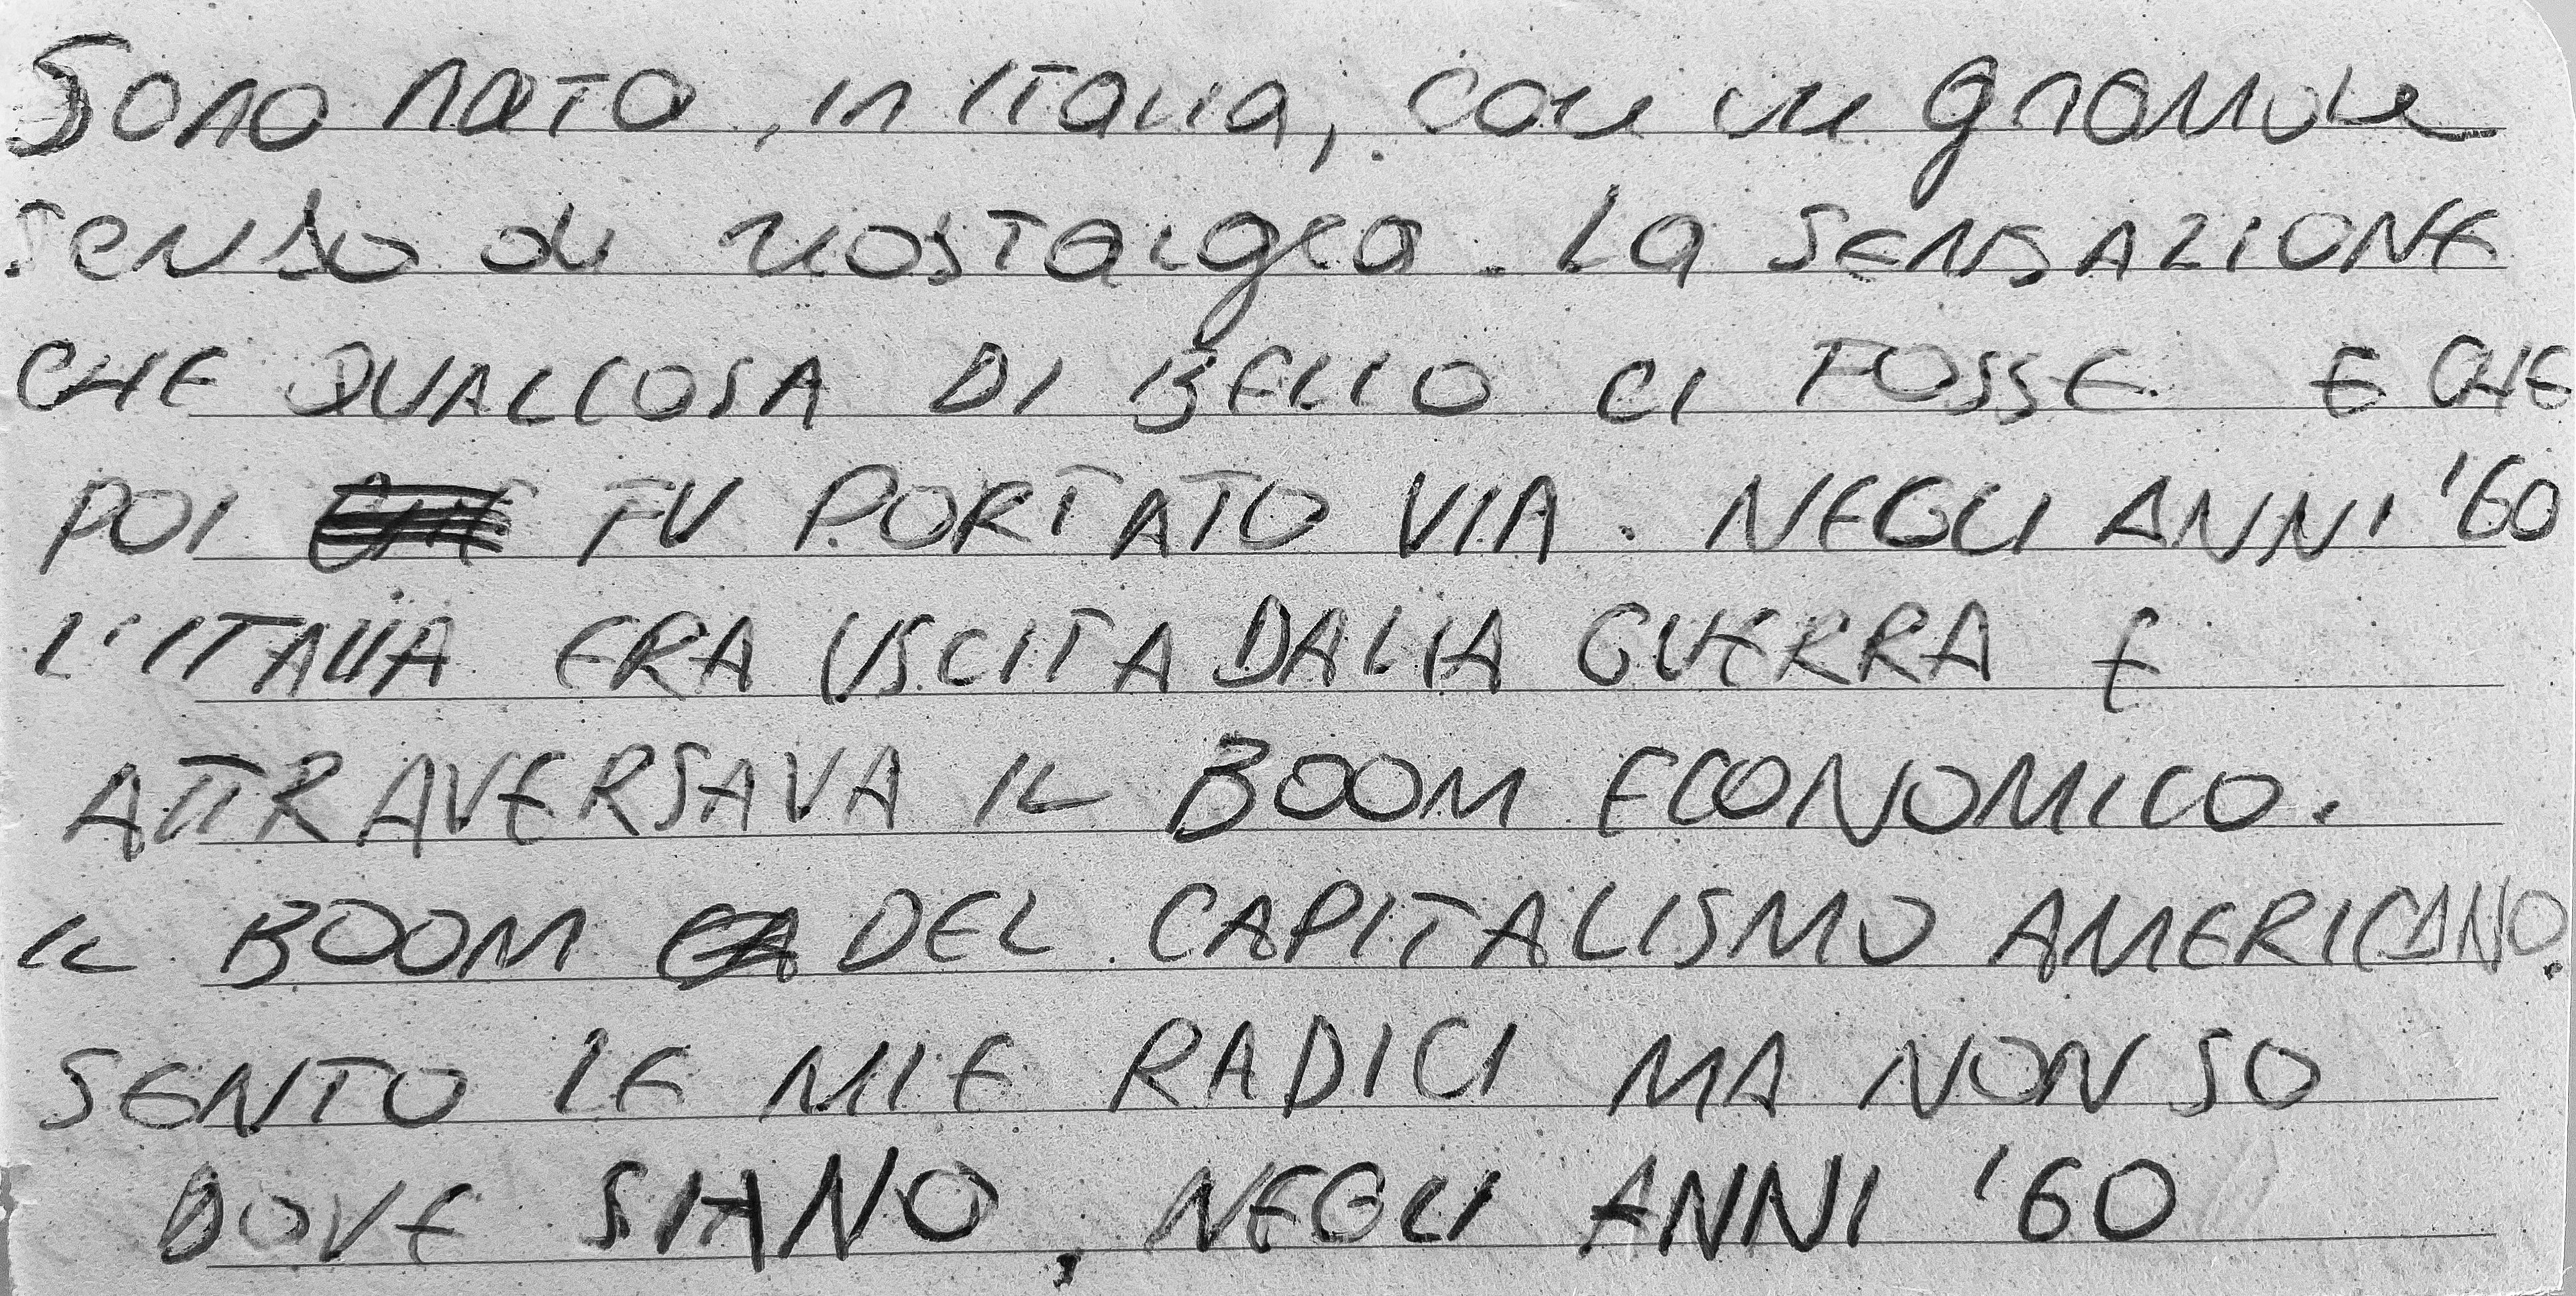 Sono nato, in Italia, con un grande
senso di nostalgia. La SENSAZIONE
CHE QUALCOSA DI BELLO CI FOSSE E CHE
POI FU PORTATO VIA. NEGLI ANNI '60
L'ITALIA ERA USCITA DALLA GUERRA E
ATTRAVERSAVA IL BOOM ECONOMICO.
IL BOOM DEL CAPITALISMO AMERICANO.
SENTO LE MIE RADICI MA NON SO
DOVE SIANO, NEGLI ANNI '60